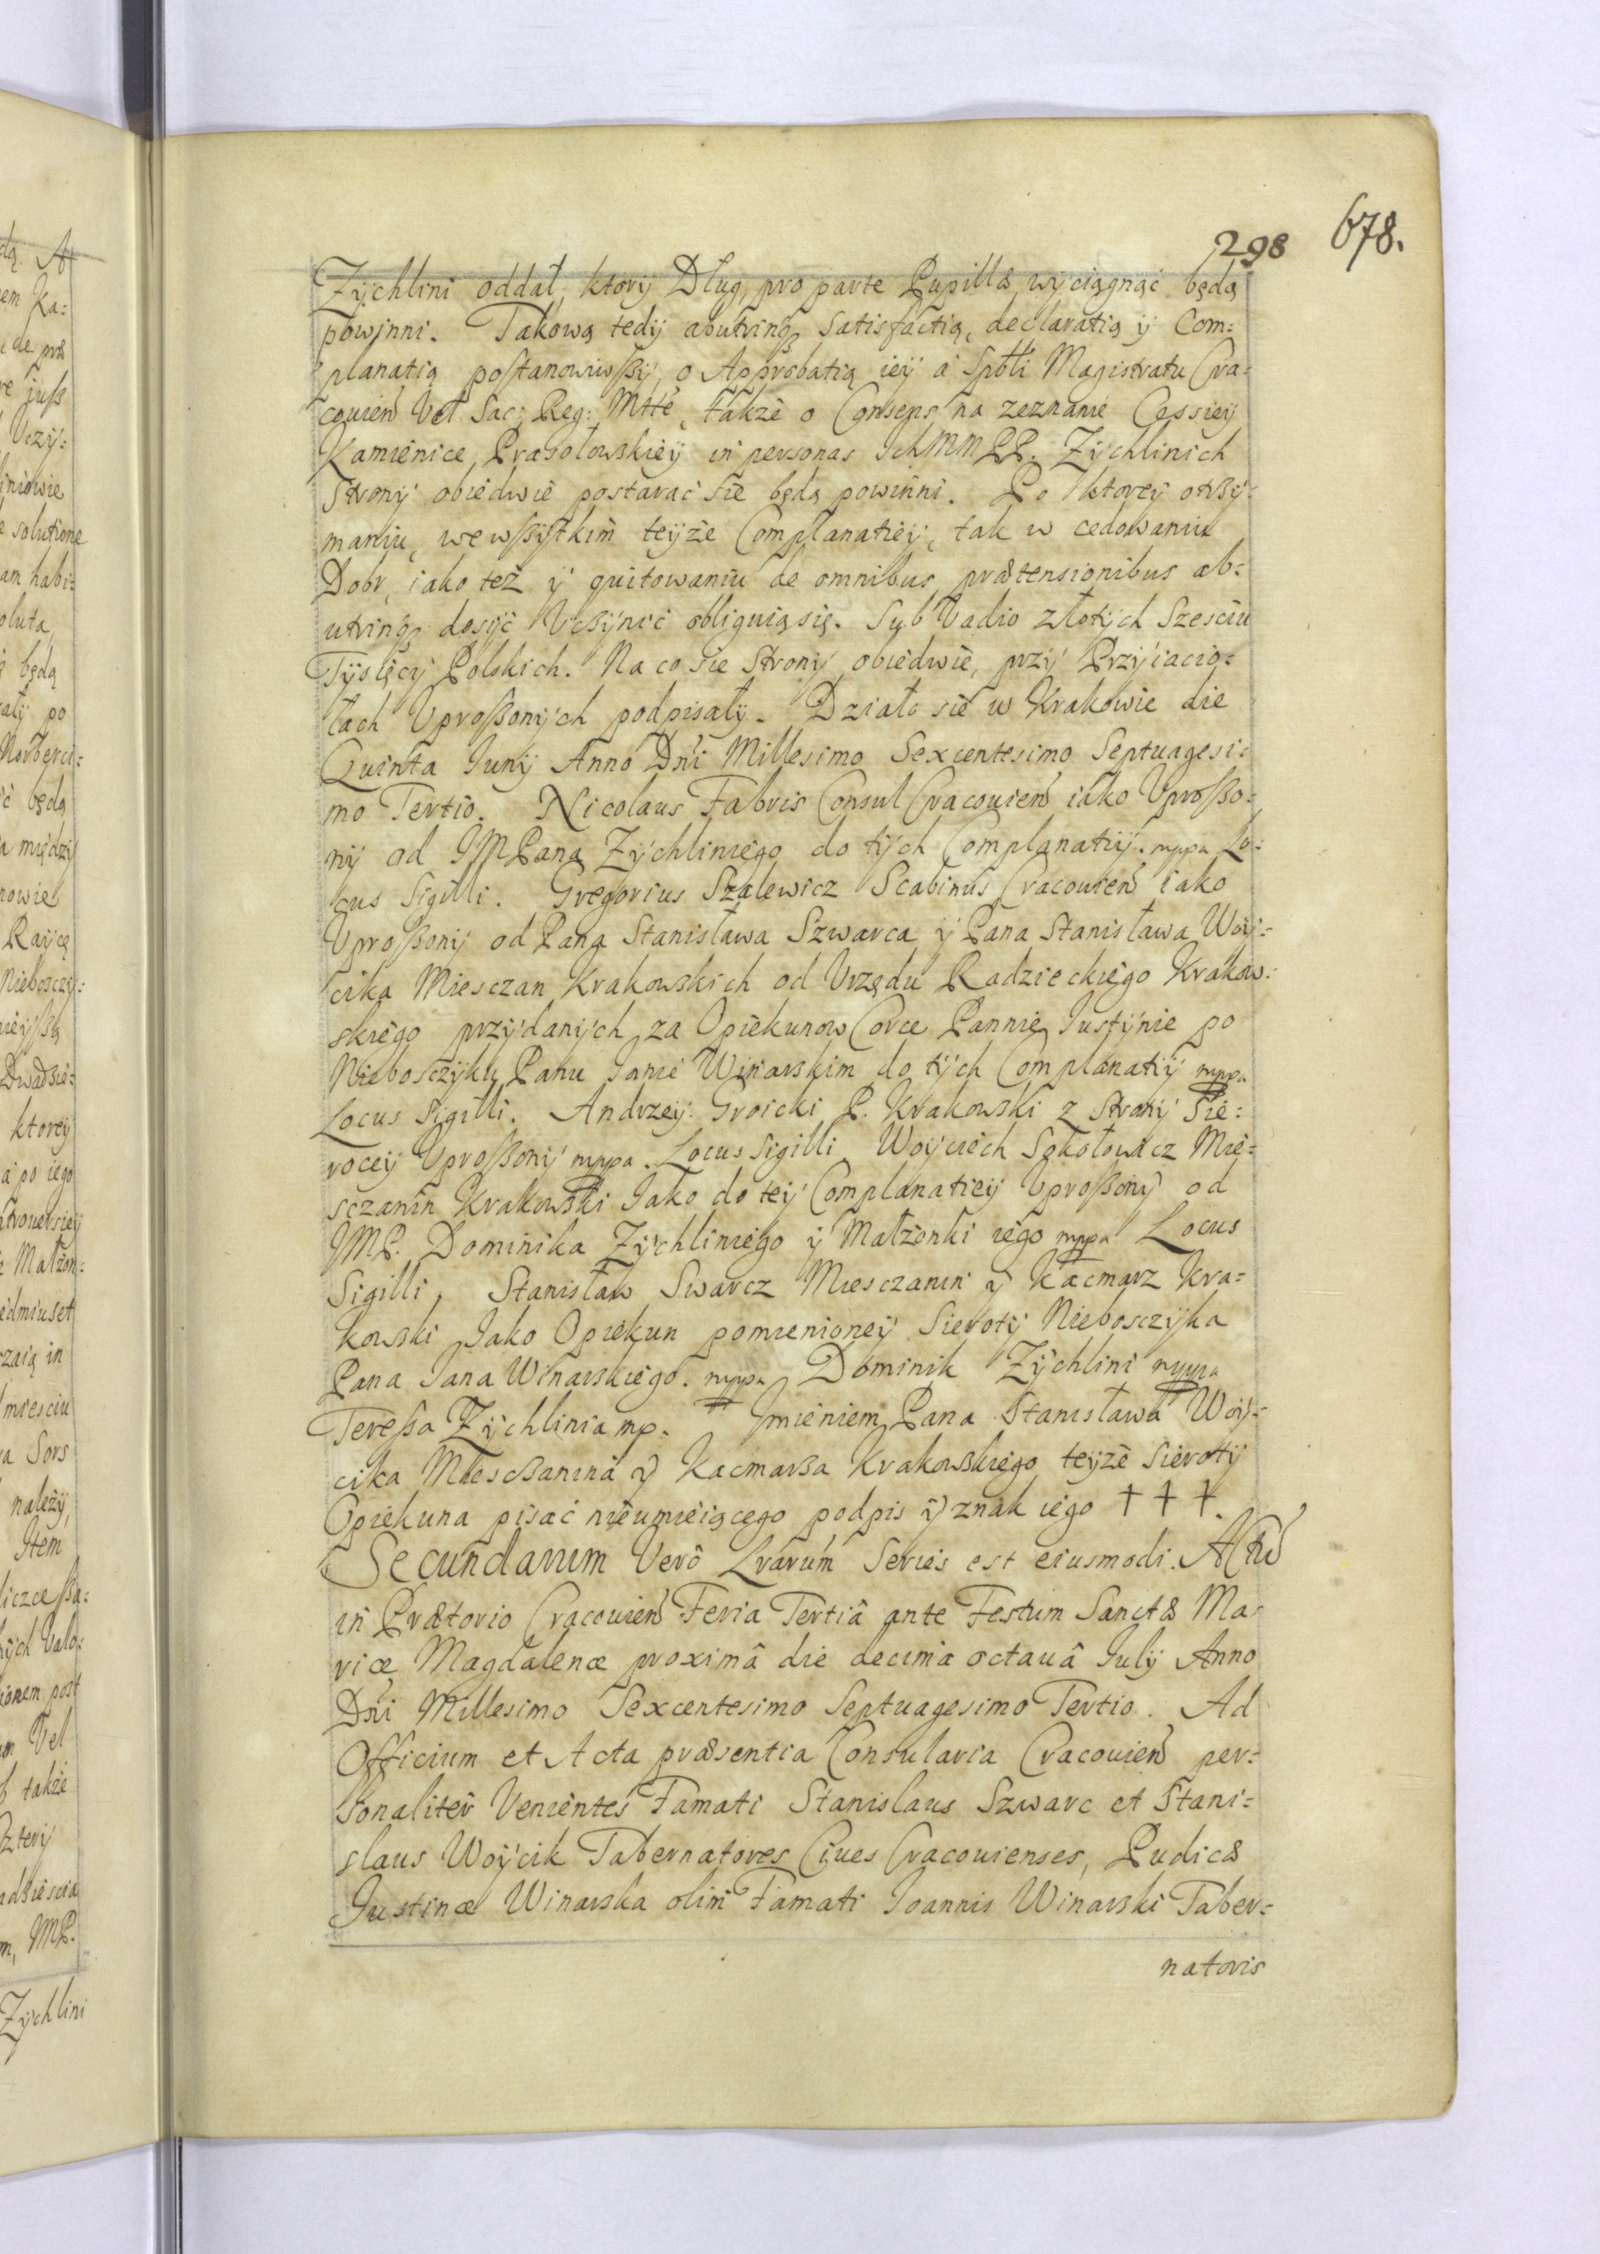 298 678.
Zychlini oddał, ktory Dług, pro parte Pupillæ wyciągnąć będą
powinni. Takową tedy abutrinq₃ satisfactią, declaratią y Com=
planatią postanowiwszy, o Approbatią iey á Spbli Magistratu Cra=
couien Vel Sac: Reg: Mtte, także o Consens na zeznanie Cessiey
Kamienice Prasołowskiey in personas IchMM PP. Zychlinich
Strony obiedwie postarać sie będą powinni. Po ktorey otrzy=
maniu, we wszystkim teyże Complanatiey, tak w cedowaniu
Dobr, iako też y quitowaniu de omnibus prætensionibus ab=
utrinq₃ dosyć Uczynić obliguią się. Sub Vadio złotych Szesciu
Tysięcy Polskich. Na co sie Strony obiedwie, przy Przyiacio=
łach Uproszonych podpisały. Działo sie w Krakowie die
Quinta Iunij Anno Dni Millesimo Sexcentesimo Septuagesi=
mo Tertio. Nicolaus Fabris Consul Cracouien iako Uproszo=
ny od JMPana Zychliniego do tych Complanatiy. mppa Lo=
cus Sigilli. Gregorius Szalewicz Scabinus Cracouien iako
Uproszony od Pana Stanisława Szwarca y Pana Stanisława Woy=
cika Miesczan Krakowskich od Urzędu Radzieckiego Krakow=
skiego przydanych za Opiekunow Corce Pannie Iustynie po
Nieboszczyku Panu Janie Winarskim do tych Complanatiy mppa
Locus Sigilli. Andrzey Groicki P. Krakowski z Strony Sie=
rocey Uproszony mppa. Locus Sigilli. Woyciech Sokołowicz Mie=
sczanin Krakowski Jako do tey Complanatiey Uproszony od
JMP. Dominika Zychliniego y Małzonki iego mppa Locus
Sigilli. Stanisław Swarcz Miesczanin y Kacmarz Kra=
kowski Jako Opiekun pomienioney Sieroty Nieboszczyka
Pana Jana Winarskiego. mppa Dominik Zychlini mppa
Teressa Zychlinia mp. Imieniem Pana Stanisława Woy=
cika Miesczanina y Kacmarza Krakowskiego teyże Sieroty
Opiekuna pisać nieumieiącego podpis y znak iego † † †.
Secundarum Verò Lrarum Series est eiusmodi. Actũ
in Prætorio Cracouien Feria Tertiâ ante Festum Sanctæ Ma=
riæ Magdalenæ proximâ die decimâ octauâ Iulij Anno
Dni Millesimo Sexcentesimo Septuagesimo Tertio. Ad
Officium et Acta præsentia Consularia Cracouien per=
sonaliter Venientes Famati Stanislaus Szwarc et Stani=
slaus Woycik Tabernatores Ciues Cracouienses, Pudicæ
Justinæ Winarska olim Famati Joannis Winarski Taber=
natoris